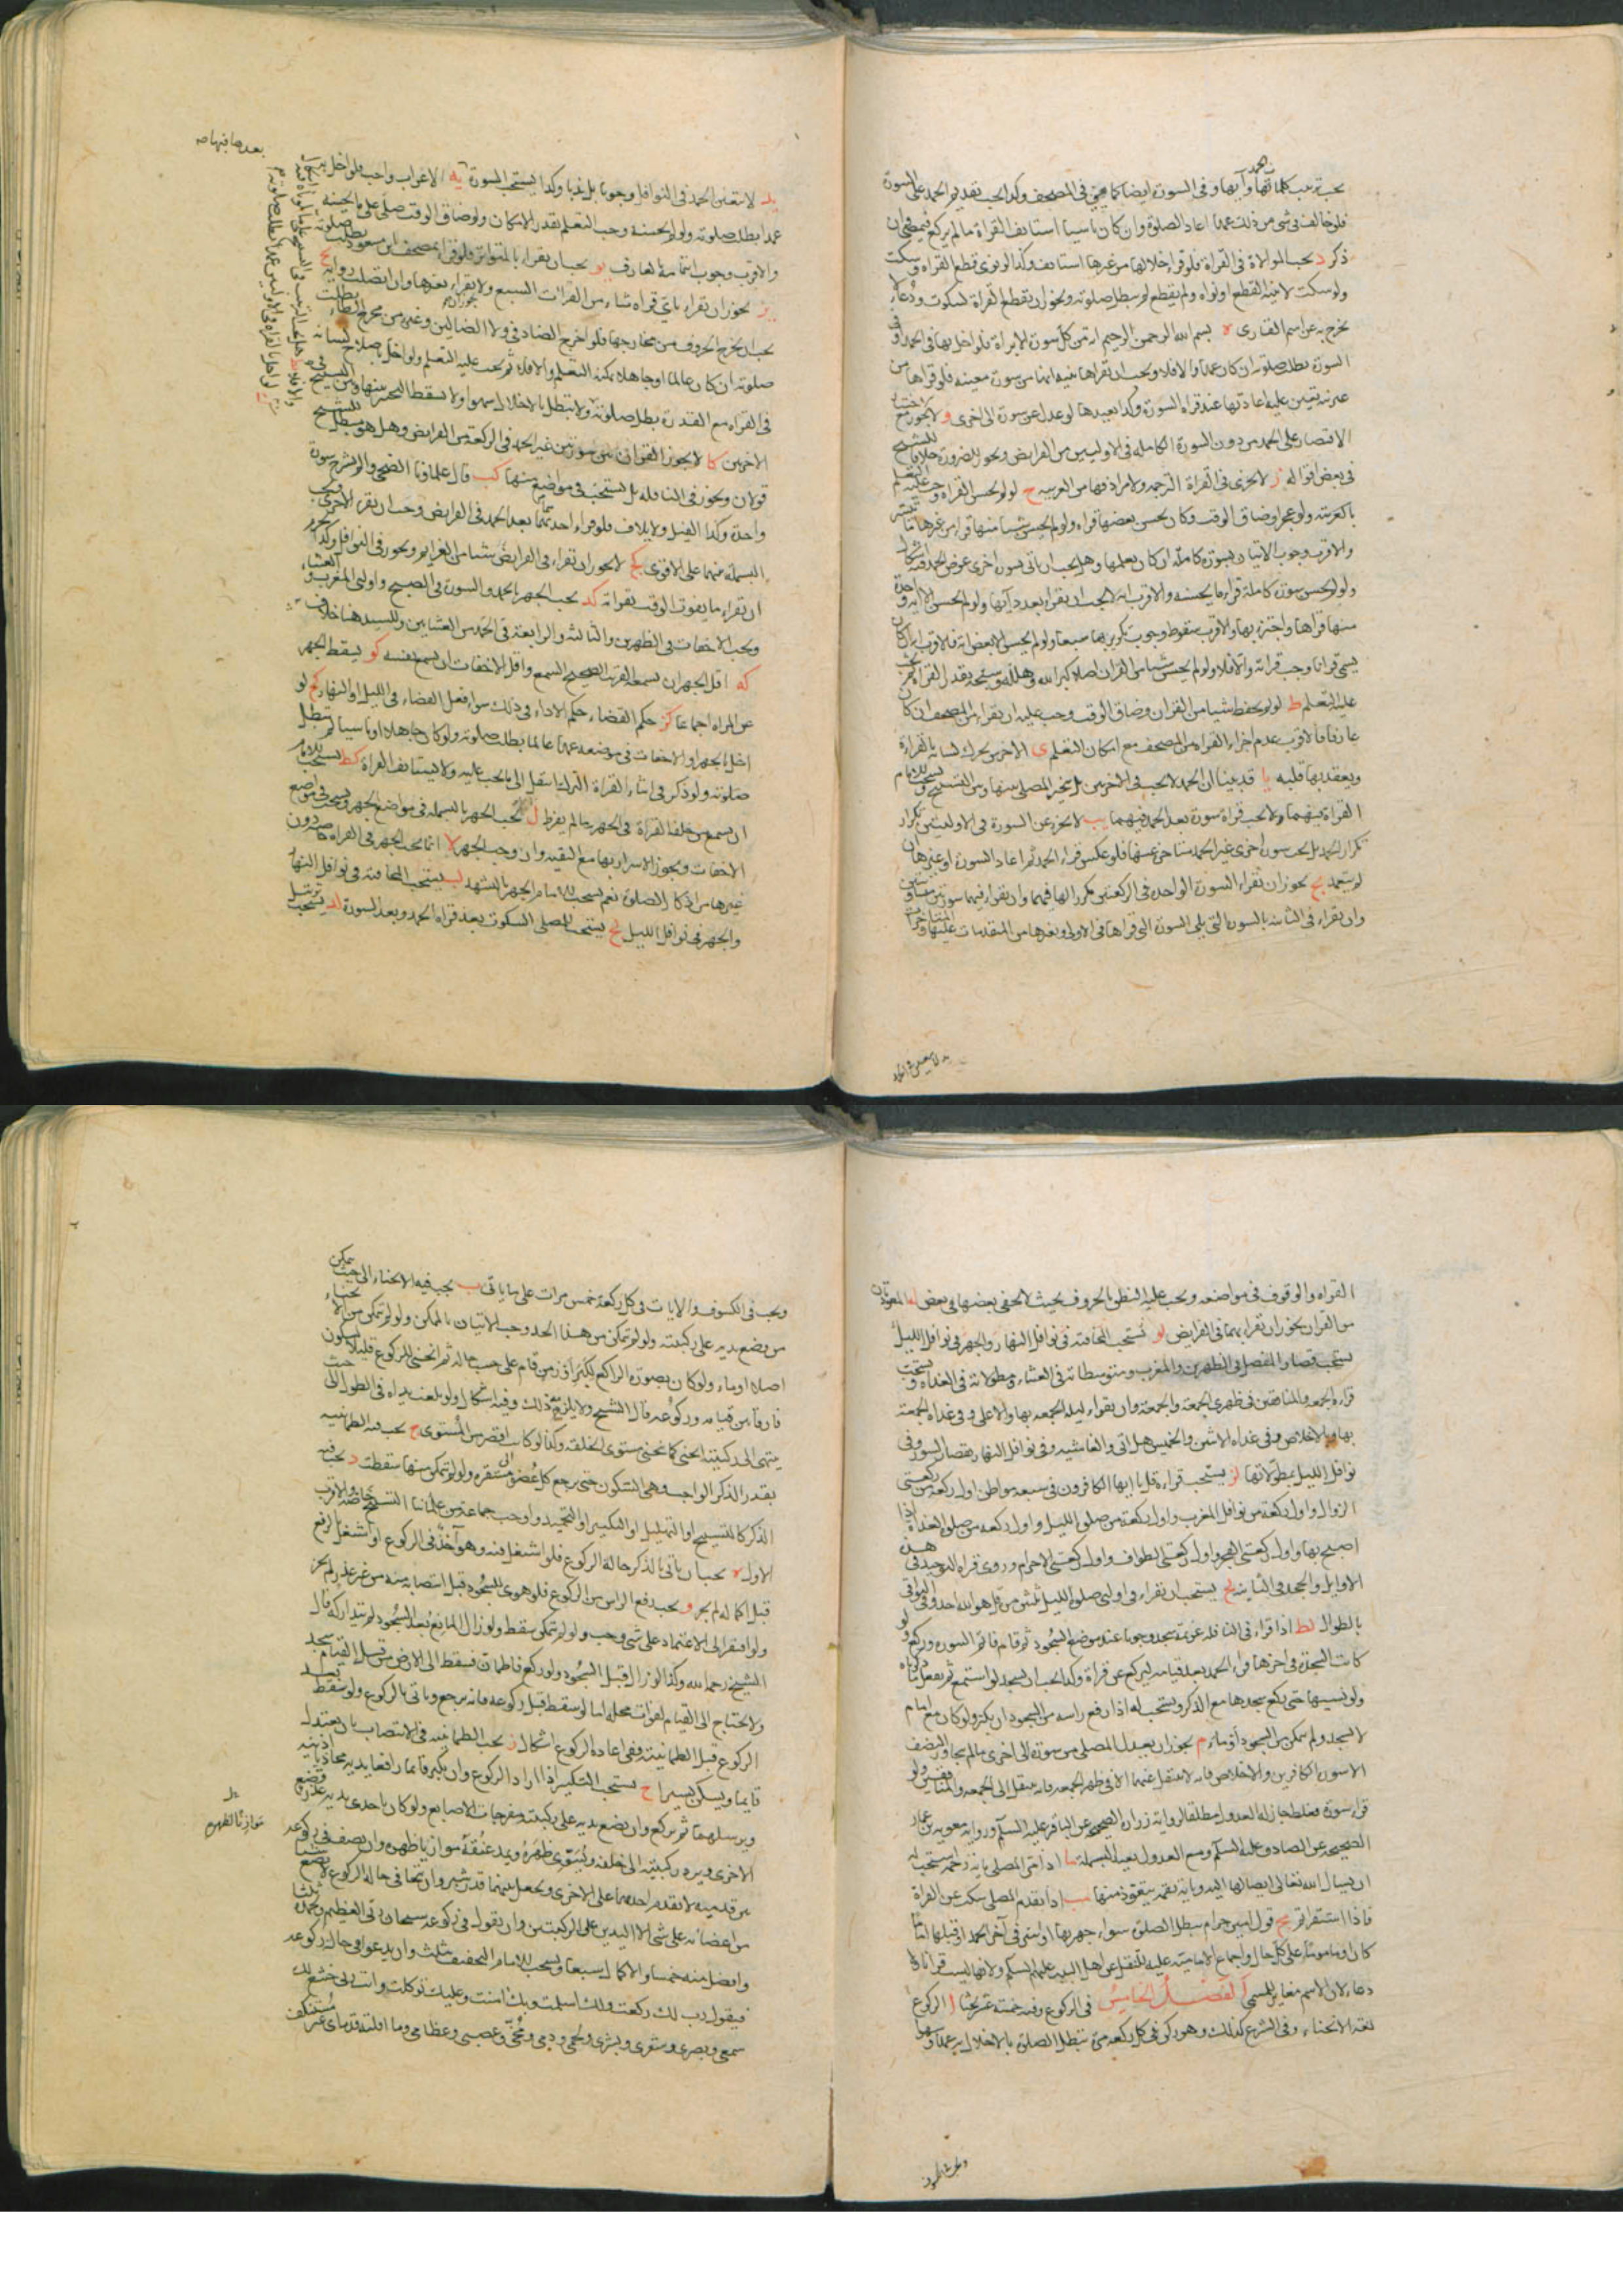 يجب ترتيب كلماتها وآيها وفي السورة ايضا كما هي في المصحف وكذا يجب تقديم الحمد على السورة
فلو خالف في شيء من ذلك عمدا اعاد الصلوة وان كان ناسيا استانف القراة ما لم يركع فيمضي ان
ذكر د يجب الموالاة في القراة فلو قرا خلالها من غيرها استانف وكذا لو نوى قطع القراة وسكت
ولو سكت لا بنية القطع او نواه ولم يقطع لم تبطل صلوته ويجوز ان يقطع القراة لسكوت ودعاء لا
يخرج به عن اسم القاري ه بسم الله الرحمن الرحيم اية من كل سورة الا براة فلو اخل بها في الحمد او في
السورة بطلت صلوته ان كان عمدا والا فلا ويجب ان يقراها بنية انها من سورة معينة فلو قراها من
غير نية تعين عليه اعادتها عند قراة السورة وكذا يعيدها لو عدل عن سورة الى اخرى و لا يجوز مع الاختيار
الاقتصار على الحمد من دون السورة الكاملة في الاوليين من الفرايض ويجوز للضرورة خلافا للشيخ
في بعض اقواله ز لا يجزي في القراة الترجمة ولا مرادفها من العربية ح لو لم يحسن القراة وجب عليه التعلم
باكثرته ولو عجز او ضاق الوقت وكان يحسن بعضها قراه ولو لم يحسن شيا منها قرا من غيرها ما تيسر
والاقرب وجوب الاتيان بسورة كاملة ان كان يعلمها وهل يجب ان ياتي بسورة اخرى عوض الحمد فيه اشكال
ولو لم يحسن سورة كاملة قراء ما يحسنه والاقرب انه لا يجب ان يقراء بعدد آيها ولو لم يحسن الا اية واحدة
منها قراها واجتزء بها والاقرب سقوط وجوب تكريرها سبعا ولو لم يحسن الا بعض اية فالاقرب ان كان
يسمى قرانا وجب قراته والا فلا ولو لم يحسن شيا من القران اصلا كبر الله وهلله وسبحه بقدر القراة ثم يجب
عليه التعلم ط لو لم يحفظ شيا من القران وضاق الوقت وجب عليه ان يقراء من المصحف ان كان
عارفا فالاقرب عدم اجزاء القراة من المصحف مع امكان التعلم ي الاخرس يحرك لسانه بالقراءة
ويعقد بها قلبه يا قد بينا ان الحمد لا يجب في الاخريين بل يتخير المصلي بينها وبين التسبيح ويستحب للامام
القراة فيهما ولا يجب قراة سورة بعد الحمد فيهما يب لا يجزء عن السورة في الاوليتين تكرار
تكرار الحمد بل يجب سورة اخرى غير الحمد متاخرة عنها فلو عكس قراء الحمد ثم اعاد السورة او غيرها ان
لم يتعمد يج يجوز ان تقراء السورة الواحدة في الركعتين مكررا لها فيهما وان يقراء فيهما سورتين متساويتين
وان يقراء في الثانية بالسورة التي يلي السورة التي قراها في الاولى وبغيرها من المتقدمات عليها والمتاخرات
يد لا يتعين الحمد
بعدها فيها صه
يد لا يتعين الحمد في النوافل وجوبا بل ندبا وكذا يستحب السورة يه الاعراب واجب فلو اخل به
عمدا بطلت صلوته ولو لم يحسنه وجب التعلم بقدر الامكان ولو ضاق الوقت صلى على ما يحسنه
والاقرب وجوب ايتمامه بالعارف يو يجب ان يقراء بالمتواتر فلو قراء بمصحف ابن مسعود بطلت صلوته
يز يجوز ان يقراء باي قراة شاء من القراءات السبع ولا يجوز ان يقراء بغيرها وان اتصلت رواية يح
يجب ان يخرج الحروف من مخارجها فلو اخرج الضاد في ولا الضالين وغيره من مخرج الظاء بطلت
صلوته ان كان عالما او جاهلا يمكنه التعلم والا فلا ثم يجب عليه التعلم ولو اخل باصلاح لسانه
في القراة مع القدرة بطلت صلوته ولا تبطل بالاخلال سهوا ولا يسقط التخير بينها وبين التسبيح في
الاخريين كا لا يجوز القران بين سورتين غير الحمد في الركعة من الفرايض وهل هو مبطل للشيخ
قولان ويجوز في النافلة بل يستحب في مواضع منها كب قال علماونا الضحى والم نشرح سورة
واحدة وكذا الفيل ولايلاف فلو قراء احدهما بعد الحمد في الفرايض وجب ان يقراء الاخرى ويجب
البسملة بينهما على الاقوى كج لا يجوز ان تقراء في الفرايض شيا من العزايم ويجوز في النوافل وكذا يحرم
ان تقراء ما يفوت الوقت بقراته كد يجب الجهر بالحمد والسورة في الصبح واولتي المغرب والعشاء
ويجب الاخفات في الظهرين والثالثة والرابعة في الحمد من العشائين وللسيد هنا خلاف
كه اقل الجهر ان يسمعه القريب الصحيح السمع واقل الاخفات ان يسمع نفسه كو يسقط الجهر
عن المراة اجماعا كز حكم القضاء حكم الاداء في ذلك سواء فعل القضاء في الليل او النهار كح لو
اخل بالجهر او الاخفات في موضعه عمدا عالما بطلت صلوته ولو كان جاهلا او ناسيا لم تبطل
صلوته ولو ذكر في اثناء القراة انتقل الى ما يجب عليه ولا يستانف القراة كط يستحب للامام
ان يسمع من خلفه القراة في الجهر ما لم يفرط ل يجب الجهر بالبسملة في مواضع الجهر ويستحب في مواضع
الاخفات ويجوز الاسرار بها مع التقية وان وجب الجهر لا انما يجب الجهر في القراة خاصة دون
غيرها من اذكار الصلوة نعم يستحب للامام الجهر بالتشهد لب يستحب المخافتة في نوافل النهار
والجهر في نوافل الليل لج يستحب للمصلي السكوت بعد قراة الحمد وبعد السورة لد يستحب ترتيل
القراة والوقوف في مواضعه ويجب عليه النطق بالحروف بحيث لا يخفى بعضها في بعض له المعوذتان
من القران يجوز ان يقراء بهما في الفرايض لو تستحب المخافتة في نوافل النهار والجهر في نوافل الليل
يستحب قصار المفصل في الظهرين والمغرب ومتوسطاته في العشاء ومطولاته في الغداة ويستحب
قراءة الجمعة والمنافقين في ظهري الجمعة والجمعة وان يقراء ليلة الجمعة بها والاعلى وفي غداة الجمعة
بها وبالاخلاص وفي غداة الاثنين والخميس هل اتى والغاشية وفي نوافل النهار بقصار السور وفي
نوافل الليل بمطولاتها لز يستحب قراءة قل يا ايها الكافرون في سبعة مواطن اول ركعة من ركعتي
الزوال واول ركعة من نوافل المغرب واول ركعة من صلوة الليل واول ركعة من صلوة الغداة اذا
اصبح بها واول ركعتي الفجر واول ركعتي الطواف واول ركعتي الاحرام وروى قراة التوحيد في هذه
الاوايل والجحد في الثانية لح يستحب ان تقراء في اولتي صلوة الليل ثلثين مرة قل هو الله احد وفي البواقي
بالطوال لط اذا قراء في النافلة عزيمة سجد وجوبا عند موضع السجود ثم قام فاتم السورة وركع ولو
كانت السجدة في اخرها قراء الحمد بعد قيامه ليركع عن قراة وكذا يجب ان يسجد لو استمع ثم يفعل ما ذكرناه
ولو نسيها حتى ركع سجدها مع الذكر ويستحب له اذا رفع راسه من السجود ان يكبر ولو كان مع امام
لا يسجد ولم يتمكن من السجود أوماء م يجوز ان يعدل المصلي من سورة الى اخرى ما لم يتجاوز النصف
الا سورة الكافرين والاخلاص فانه لا ينتقل عنهما الا في ظهر الجمعة فانه ينتقل الى الجمعة والمنافقين ولو
قراء سورة فغلط جاز له العدول مطلقا لرواية زرارة الصحيحة عن الباقر عليه السلم ورواية معوية بن عمار
الصحيحة عن الصادق عليه السلم ومع العدول يعيد البسملة ما اذا مر المصلي باية رحمة يستحب له
ان يسال الله تعالى ايصالها اليه وباية نقمة يتعوذ منها مب اذا تقدم المصلي سكت عن القراة
فاذا استقر قراء مج قول امين حرام يبطل الصلوة سواء جهر بها او اسر في آخر الحمد او قبلها اماما
كان او ماموما وعلى كل حال واجماع الامامية عليه للنقل عن اهل البيت عليهم السلم ولانها ليست قرانا ولا
دعاء لان الاسم مغاير للمسمى الفصل الخامس في الركوع وفيه خمسة عشر بحثا ا الركوع
لغة الانحناء وفي الشرع كذلك وهو ركن في كل ركعة مرة تبطل الصلوة بالاخلال به عمدا وسهوا
ويجب في الكسوف والايات في كل ركعة خمس مرات على ما ياتي ب يجب فيه الانحناء الى حيث يتمكن
من وضع يديه على ركبتيه ولو لم يتمكن من هذا الحد وجب الاتيان بالممكن ولو لم يتمكن من الانحناء
اصلا اوماء ولو كان بصورة الراكع لكبر او زمن قام على حسب حاله ثم انحنى للركوع قليلا ليكون
فارقا بين قيامه وركوعه قال الشيخ ولا يلزمه ذلك وفيه اشكال ولو بلغت يداه في الطول الى حيث
ينتهى الى ركبتيه انحنى كما ينحني مستوي الخلقة وكذا لو كانت اقصر من المستوى ج يجب فيه الطمانينة
بقدر الذكر الواجب وهي السكون حتى يرجع كل عضو الى مستقره ولو لم يتمكن منها سقطت د يجب فيه
الذكر كالتسبيح او التهليل او التكبير او التحميد واوجب جماعة من علمائنا التسبيح خاصة والاقرب
الاول ه يجب ان ياتي بالذكر حالة الركوع فلو اشتغل فيه وهو آخذ في الركوع او اشتغل بالرفع
قبل اكماله لم يجز و يجب رفع الراس من الركوع فلو هوى للسجود قبل انتصابه منه من غير عذر لم يجز
ولو افتقر الى الاعتماد على شيء وجب ولو لم يتمكن سقط ولو زال المانع بعد السجود لم يتداركه قال
الشيخ رحمه الله وكذا لو زال قبل السجود ولو ركع فاطمان فسقط الى الارض من قبل القيام سجد
ولا يحتاج الى القيام لفوات محله اما لو سقط قبل ركوعه فانه يرجع وياتي بالركوع ولو سقط بعد
الركوع قبل الطمانينة ففي اعادة الركوع اشكال ز يجب الطمانينة في الانتصاب بان يعتدل
قايما ويسكن يسيرا ح يستحب التكبير اذا اراد الركوع وان يكبر قايما رافعا يديه محاذيا اذنيه
ويرسلهما ثم يركع وان يضع يديه على ركبتيه مفرجات الاصابع ولو كان باحدى يديه عذر وضع
الاخرى ويرد ركبتيه الى خلفه ويسوي ظهره ويمد عنقه موازيا ظهره وان يصف في ركوعه
بين قدميه لا يقدم احدهما على الاخرى ويجعل بينهما قدر شبر وان يتجافى في حالة الركوع لا يضع شيا
من اعضائه على شيء الا اليدين على الركبتين وان يقول في ركوعه سبحان ربي العظيم وبحمده ثلثا
وافضل منه خمسا والاكمل سبعا ويستحب للامام التخفيف بثلث وان يدعو امام حالة ركوعه
فيقول رب لك ركعت ولك اسلمت وبك امنت وعليك توكلت وانت ربي خشع لك
سمعي وبصري وشعري وبشري ولحمي ودمي ومخي وعصبي وعظامي وما اقلته قدماي غير مستنكف